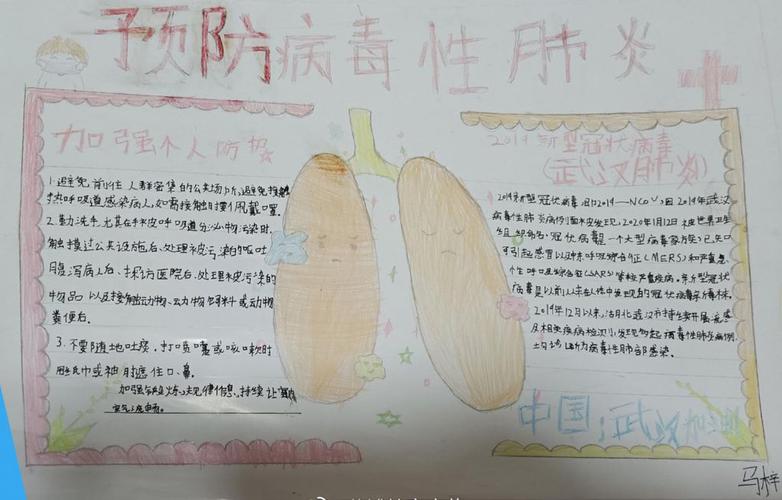 预防病毒性肺炎
加强个人防护
1.避免前往人群密集的公共场所,避免接触发
热呼吸道感染病人,如需接触时要佩戴口罩
2.勤洗手尤其在手被呼吸道分泌物污染时、
触摸过公共设施后、处理被污染的
腹泻病人后、探访医院后、处理被污染的
物品以及接触动物、动物饲料或动物
粪便后。
3.不要随地吐痰,打喷嚏或咳嗽时
用纸巾或袖肘遮住口、鼻。
加强锻炼、规律作息、持续让
空气
2019新型冠状病毒
(武汉肺炎)
2019新型冠状病毒,因2019年武汉
病毒性肺炎病例而被发现,2020年1月12日被世界卫生
组织命名。冠状病毒是一个大型病毒家族,已知
可引起感冒以及中东呼吸综合征(MERS)和严重急
性呼吸综合征(SARS)等较严重疾病。新型冠状
病毒是以前从未在人体中发现的冠状病毒新毒株。
2019年12月以来,湖北武汉市持续开展流感
及相关疾病检测,发现多起病毒性肺炎病例
均诊断为病毒性肺部感染。
中国;武汉加油
马梓